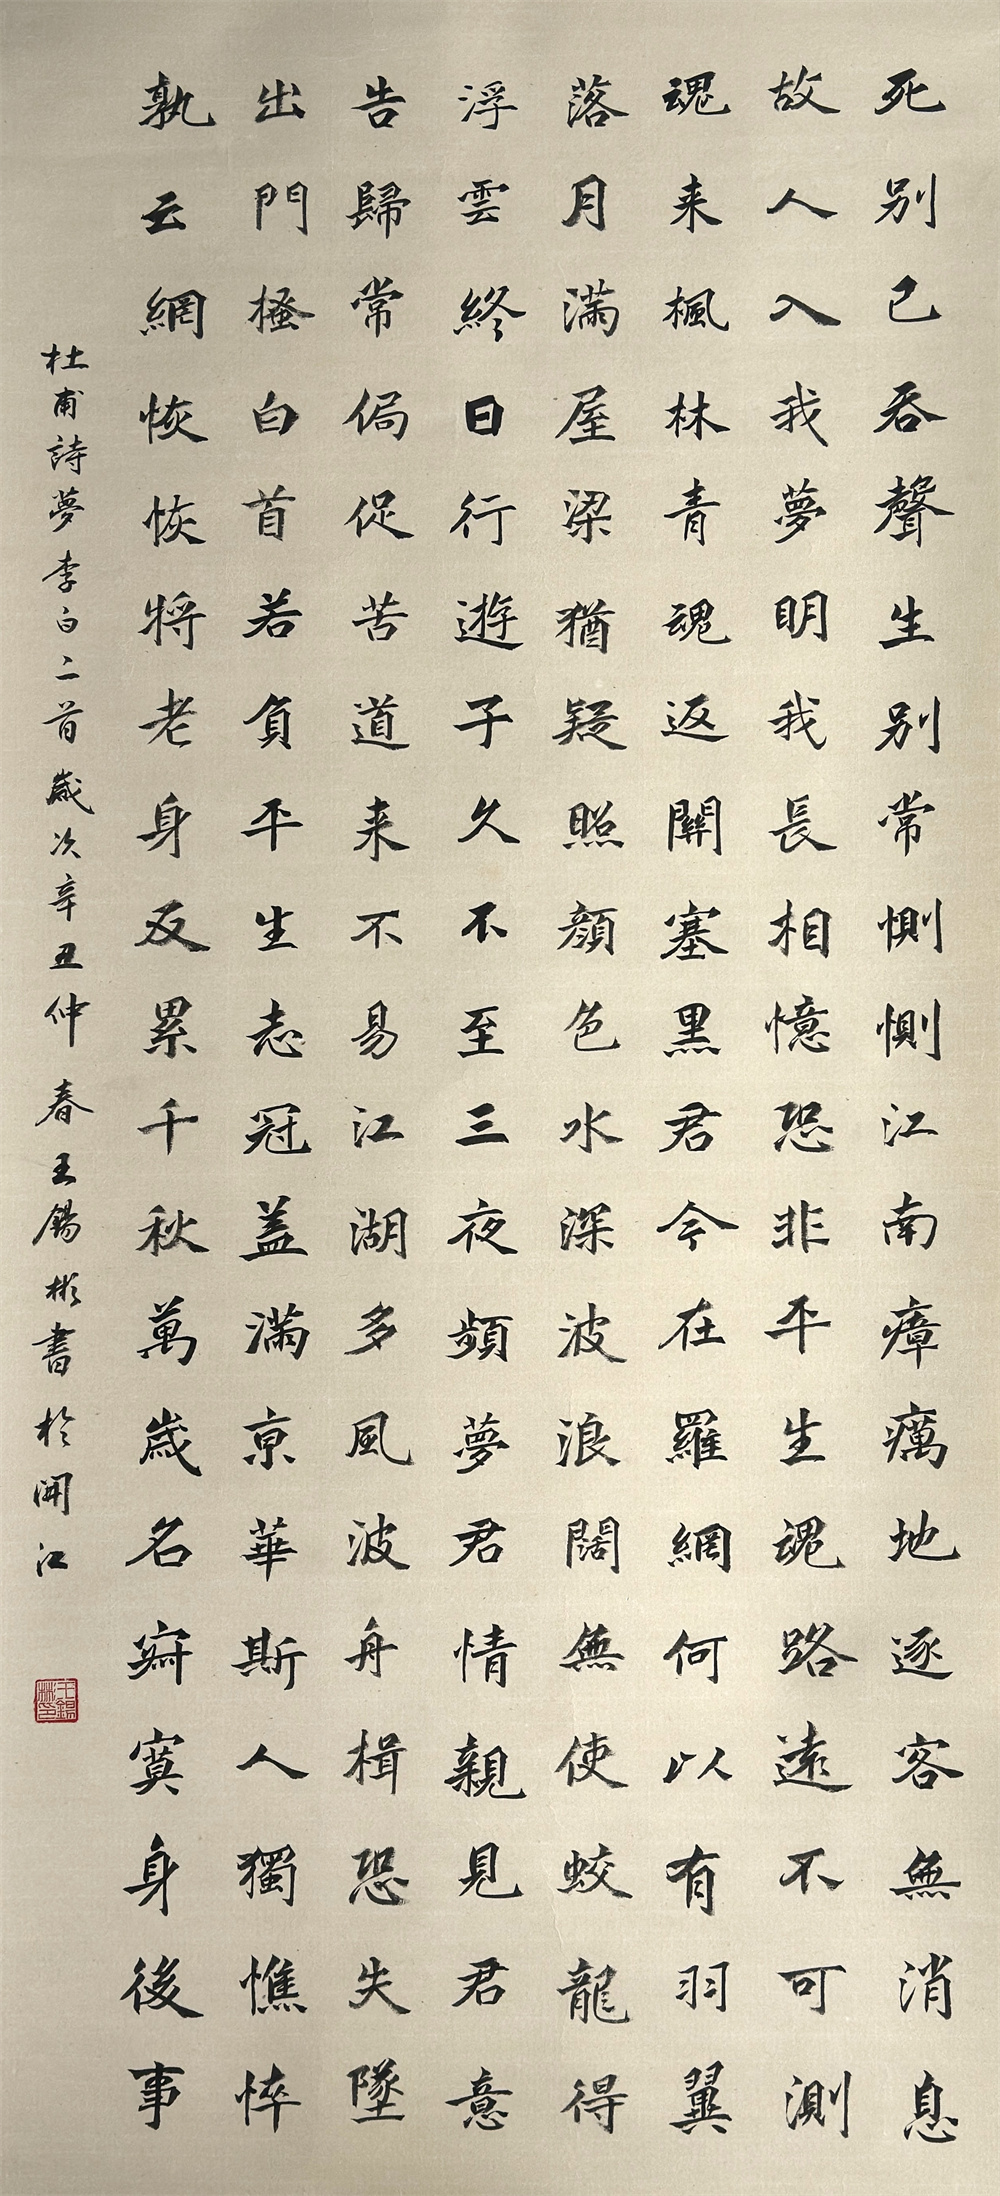 死别已吞聲生别常惻惻江南瘴癘地逐客無消息
故人入我夢明我長相憶恐非平生魂路遠不可測
魂来楓林青魂返關塞黑君今在羅網何以有羽翼
落月滿屋梁猶疑照顏色水深波浪闊無使蛟龍得
浮雲終日行遊子久不至三夜頻夢君情親見君意
告歸常侷促苦道来不易江湖多風波舟楫恐失墜
出門搔白首若負平生志冠盖滿京華斯人獨憔悴
孰云網恢恢将老身反累千秋萬歲名寂寞身後事
杜甫詩夢李白二首歲次辛丑仲春王錫彬書於開江
王錫彬印